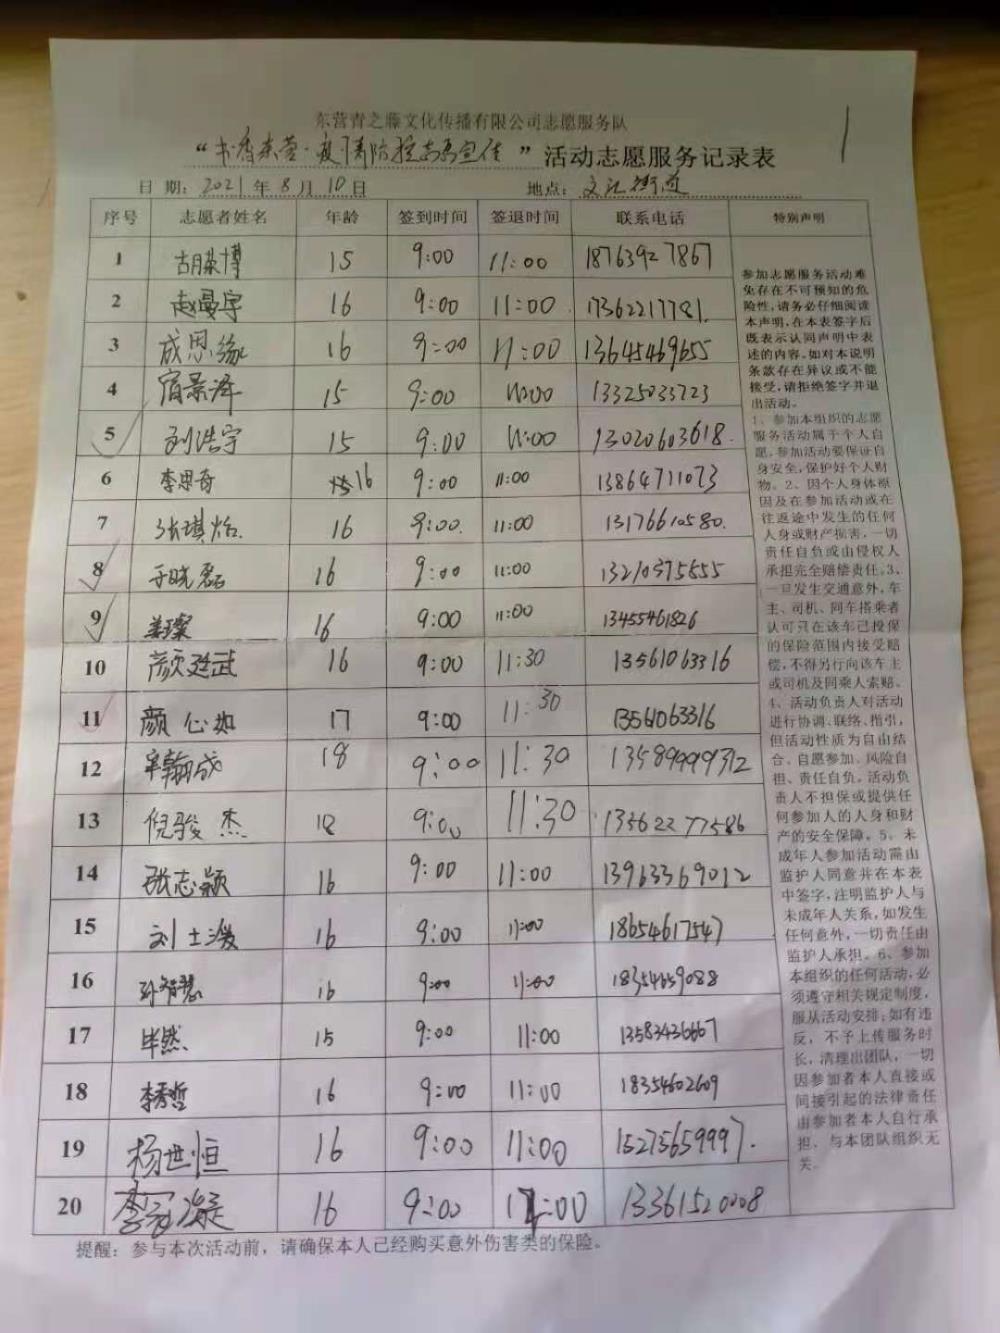 1
东营青之藤文化传播有限公司志愿服务队
“书香东营·疫情防控志愿宣传”活动志愿服务记录表
日 期：2021年8月10日 地点：文汇街道
序号 志愿者姓名 年龄 签到时间 签退时间 联系电话 特别声明
1 15 9:00 11:00 18763927867
2 赵曼宇 16 9:00 11:00 17362217781.
3 成思缘 16 9:00 11:00 13645469655
4 宿景泽 15 9:00 11:00 13325033723
5 刘浩宇 15 9:00 11:00 13020603618.
6 李思奇 16 9:00 11:00 13864711073
7 张琪焓. 16 9:00. 11:00 13176610580.
8 于晓磊 16 9:00 11:00 13210375655
9 姜璨 16 9:00 11:00 13455461826
10 颜廷武 16 9:00 11:30 13561063316
11 颜心如 17 9:00 11:30 13561063316
12 18 9:00 11:30 13589999312
13 倪骏杰 18 9:00 11:30 13562277586
14 张志颖 16 9:00 11:00 13963369012
15 刘士淏 16 9:00 11:00 18654617547
16 孙智慧 16 9:00 11:00 18354659088
17 毕然 15 9:00 11:00 13583436667
18 李秀哲 16 9:00 11:00 18354602609
19 杨世恒 16 9:00 11:00 15275659997.
20 李冠凝 16 9:00 11:00 13361520008
参加志愿服务活动难
免存在不可预知的危
险性,请务必仔细阅读
本声明,在本表签字后
既表示认同声明中表
述的内容,如对本说明
条款存在异议或不能
接受,请拒绝签字并退
出活动。
1、参加本组织的志愿
服务活动属于个人自
愿,参加活动要保证自
身安全,保护好个人财
物。2、因个人身体原
因及在参加活动或在
往返途中发生的任何
人身或财产损害,一切
责任自负或由侵权人
承担完全赔偿责任。3、
一旦发生交通意外,车
主、司机、同车搭乘者
认可只在该车已投保
的保险范围内接受赔
偿,不得另行向该车主
或司机及同乘人索赔。
4、活动负责人对活动
进行协调、联络、指引,
但活动性质为自由结
合、自愿参加、风险自
担、责任自负,活动负
责人不担保或提供任
何参加人的人身和财
产的安全保障。5、未
成年人参加活动需由
监护人同意并在本表
中签字,注明监护人与
未成年人关系,如发生
任何意外,一切责任由
监护人承担。6、参加
本组织的任何活动,必
须遵守相关规定制度,
服从活动安排;如有违
反，不予上传服务时
长，清理出团队,一切
因参加者本人直接或
间接引起的法律责任
由参加者本人自行承
担，与本团队组织无
关。
提醒：参与本次活动前，请确保本人已经购买意外伤害类的保险。